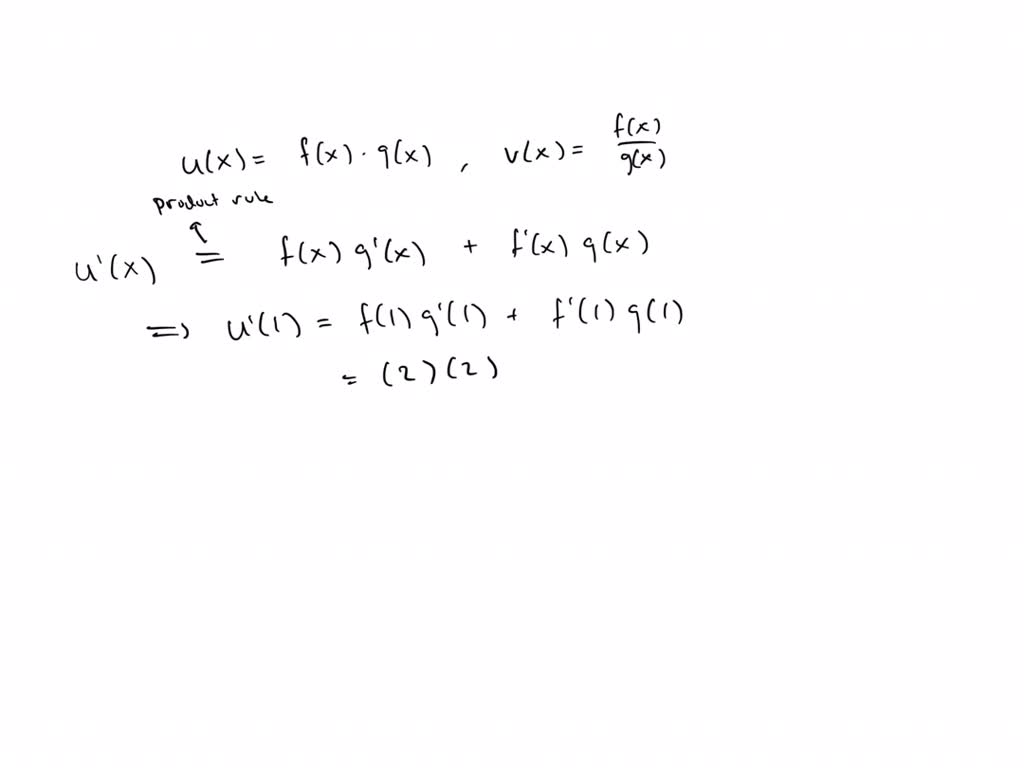 u(x) = f(x) · g(x) , v(x) = f(x)/g(x)
product rule
u'(x) = f(x) g'(x) + f'(x) g(x)
⇒ u'(1) = f(1) g'(1) + f'(1) g(1)
= (2)(2)